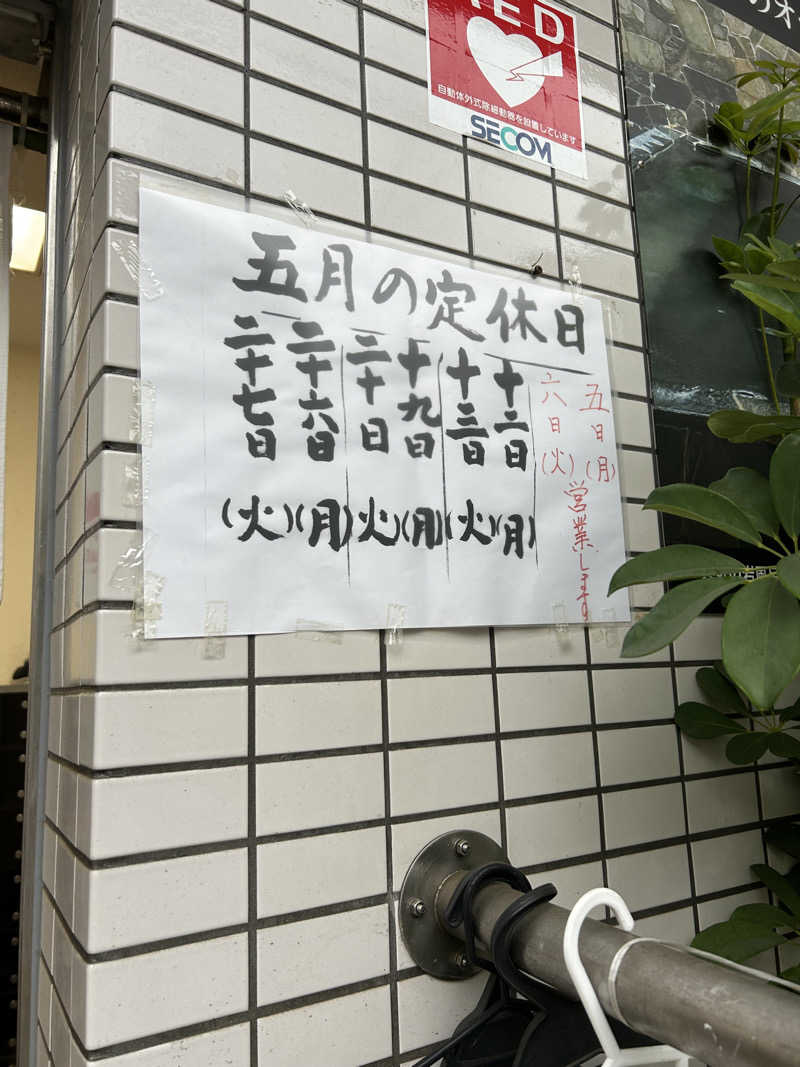 AED
自動体外式除細動器を設置しています
SECOM
五月の定休日
五日(月)
六日(火)
営業します
十二日(月)
十三日(火)
十九日(月)
二十日(火)
二十六日(月)
二十七日(火)